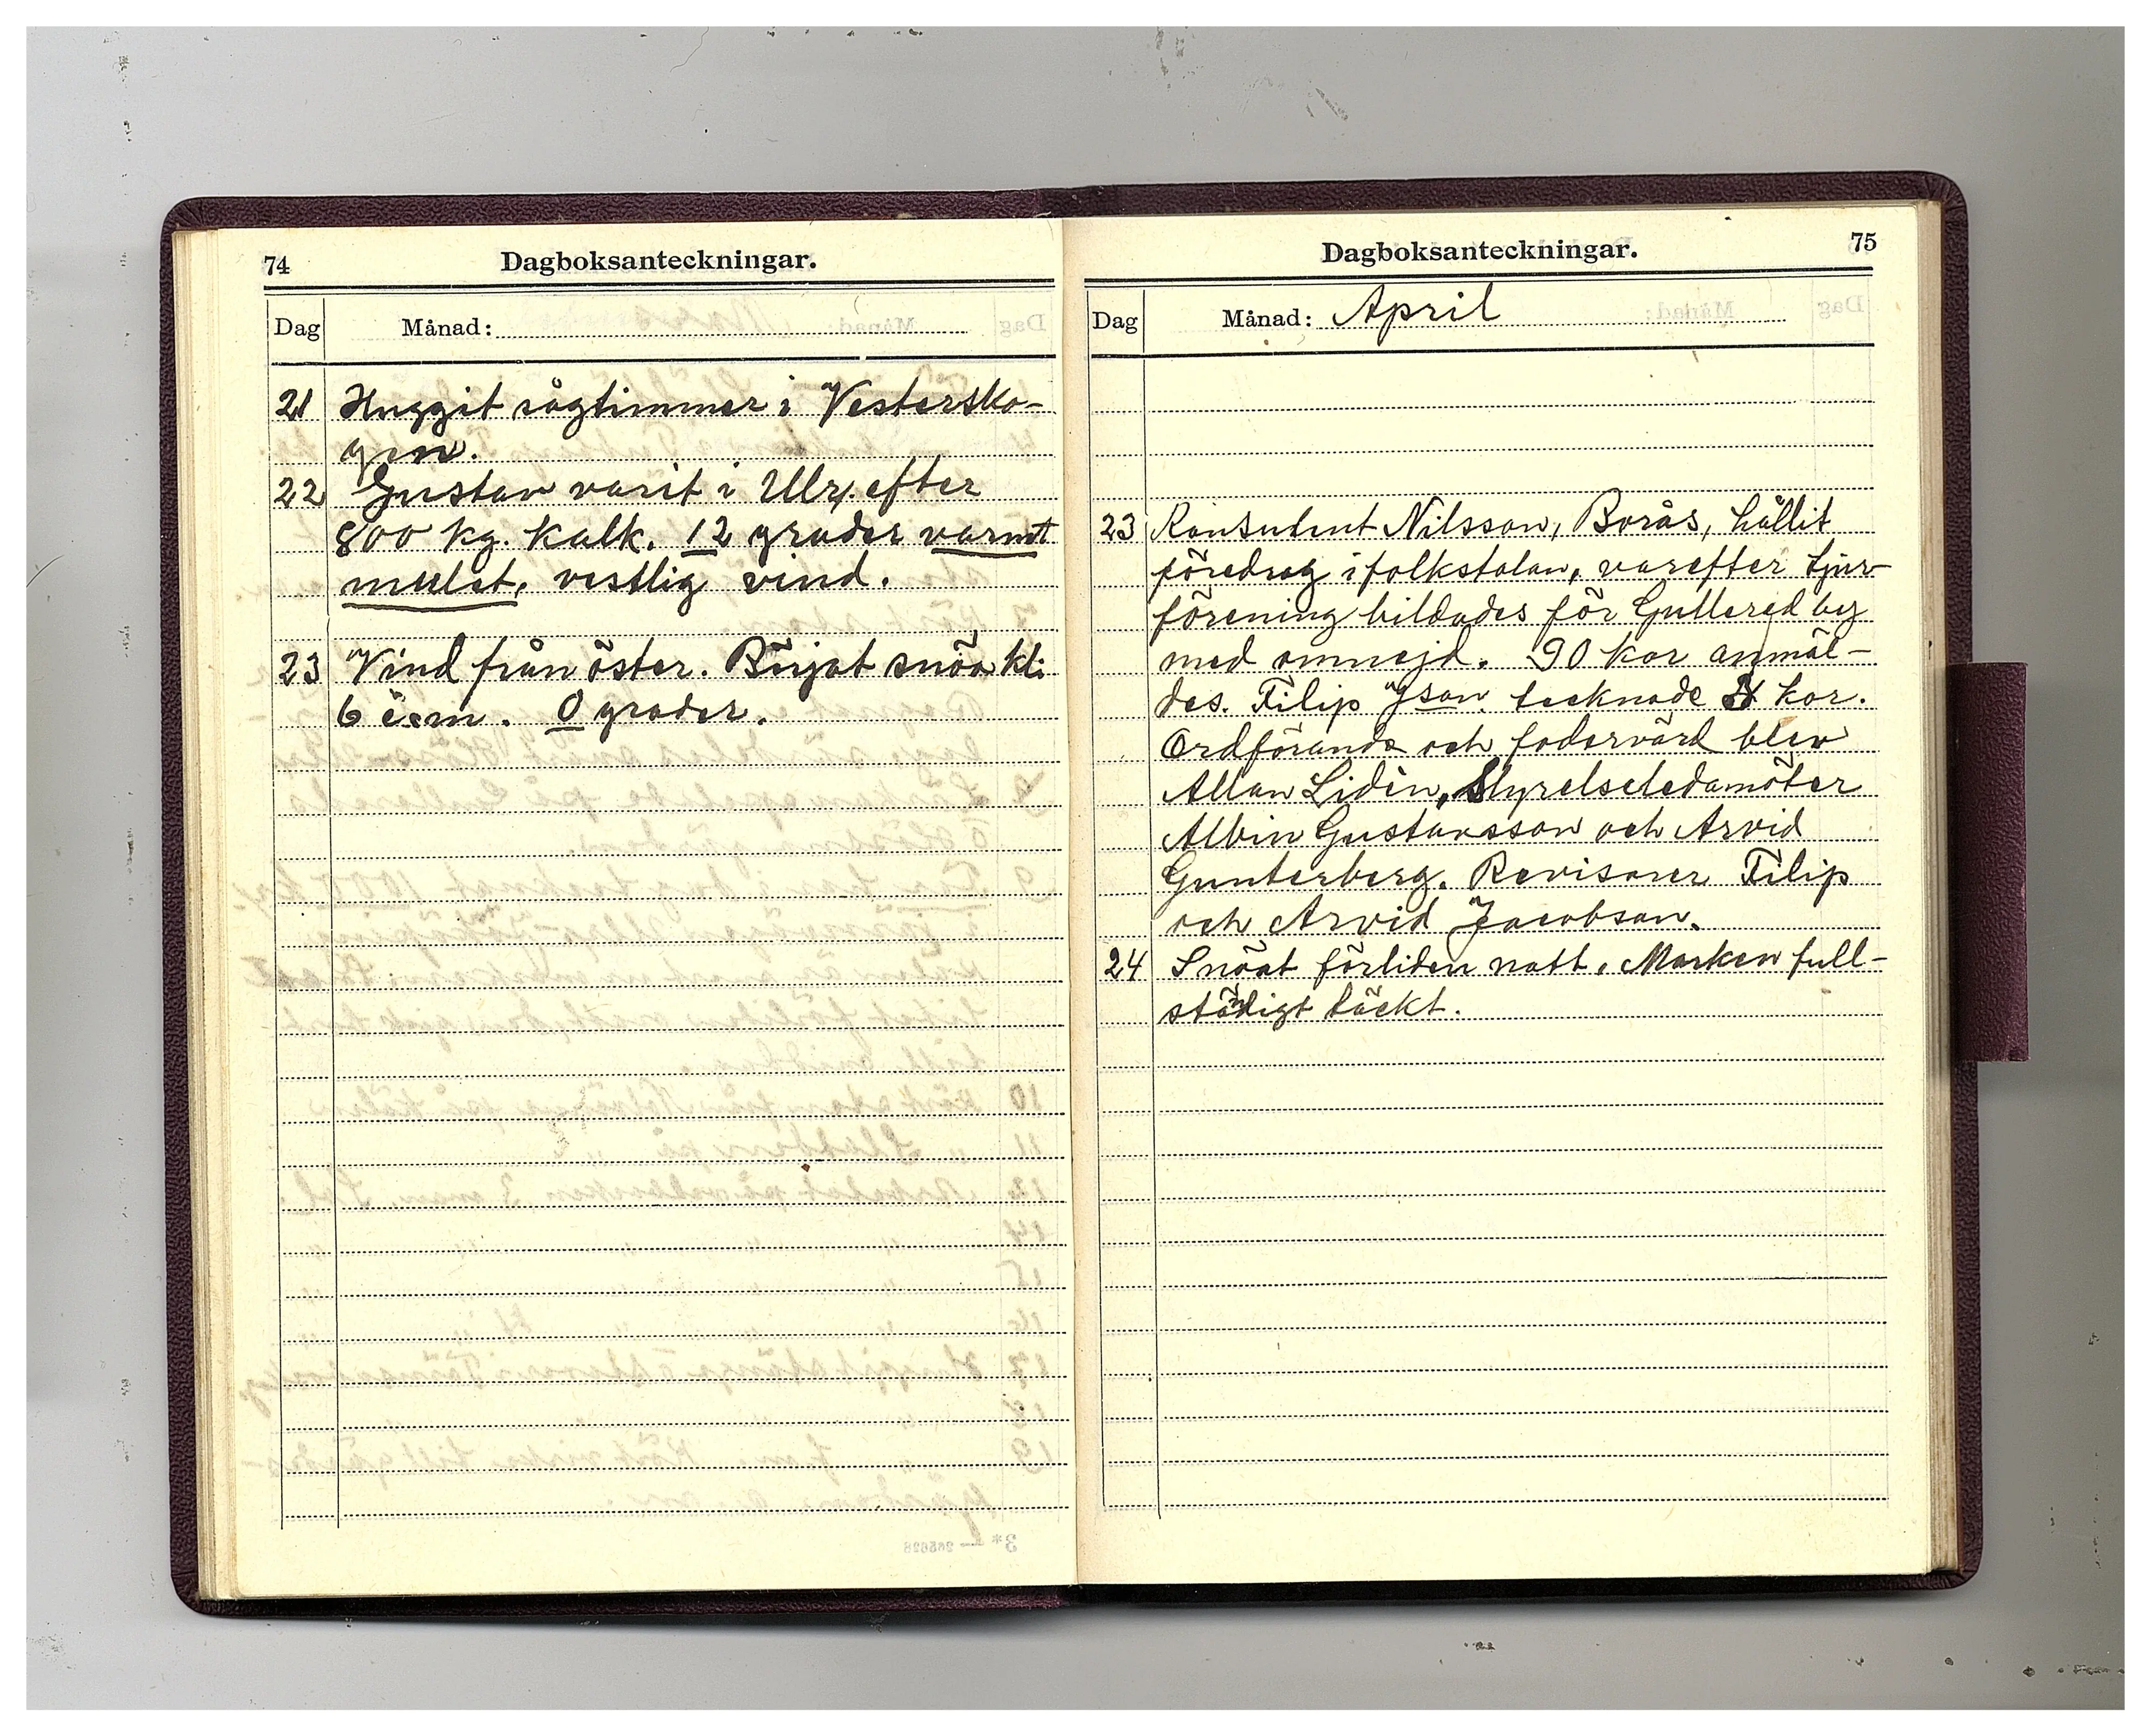 74
Dagboksanteckningar.
Dag Månad:
21 Huggit sågtimmer i Vestersko-
gen.
22 Gustav varit i Ulr. efter
800 kg. Kalk. 12 grader varmt
mulet, vestlig vind.
23 Vind från öster. Börjat snöa kl:
6 e.m. 0 grader.
Dagboksanteckningar.
75
Dag Månad: April
23 Konsulent Nilsson, Borås, hållit
föredrag i folkskolan, varefter tjur-
förening bildades för Gullered by
med omnejd. 90 Kor anmäl-
des. Filip Json. tecknade kor.
Ordförande och fodervärd blev
Allan Lidén, Styrelseledamöter
Albin Gustavsson och Arvid
Gunterberg. Revisorer Filip
och Arvid Jacobson.
24 Snöat förliden natt. Marken full-
ständigt täckt.